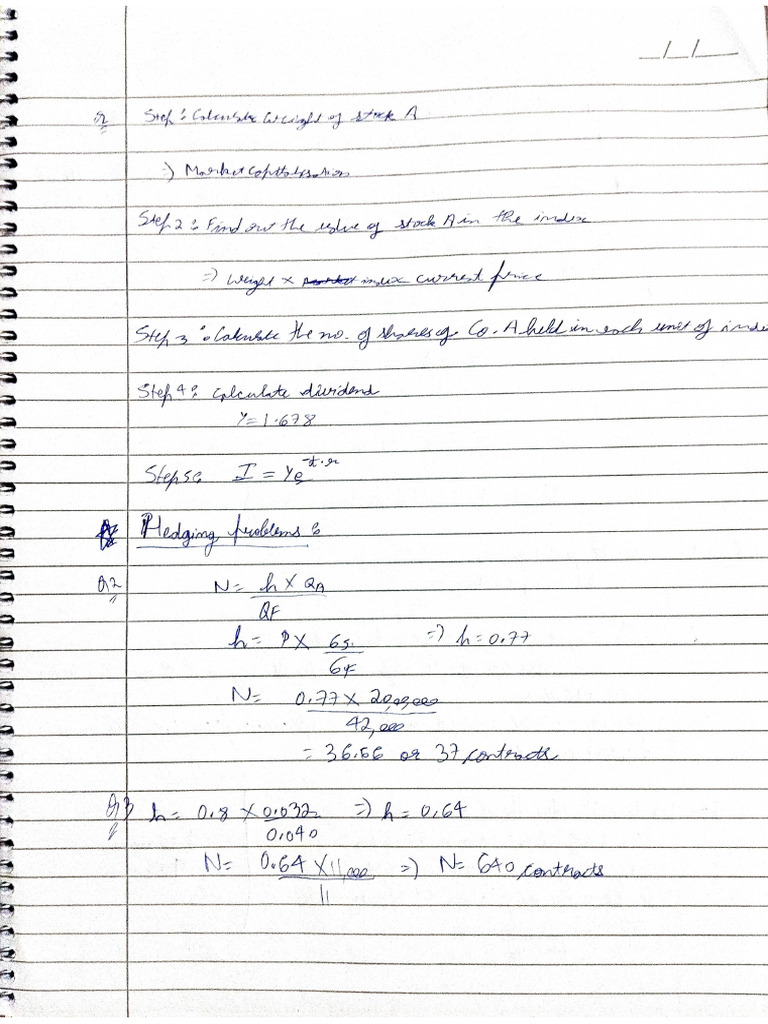 _/_/__
Step: Calculate Weight of stock A
=) Market Capitalisation
Step 2: Find out the value of stock A in the index
=) Weight x index current price
Step 3: Calculate the no. of shares of Co. A held in each unit of inde
Step 4: Calculate dividend
Y=1.678
Step 5: I = Ye^-t.r
Hedging problems:
Q2 N= h x QA
QF
h= P x 6s. =) h=0.77
6F
N= 0.77 x 20,00,000
42,000
= 36.66 or 37 contracts
Q3 h= 0.8 x 0.032 =) h= 0.64
0.040
N= 0.64 x 11,000 =) N= 640 contracts
11